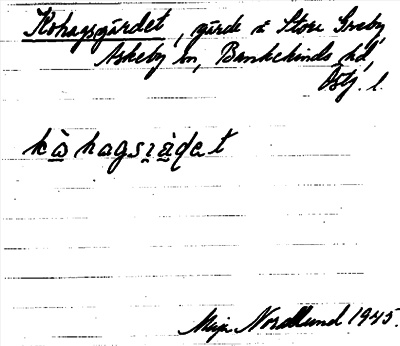 Kohagsgärdet, gärde å Store Greby,
Askeby sn, Bankekinds hd,
Östg. l.
kò̲hagsi̲à̲ḍet
Maja Nordlund 1945.